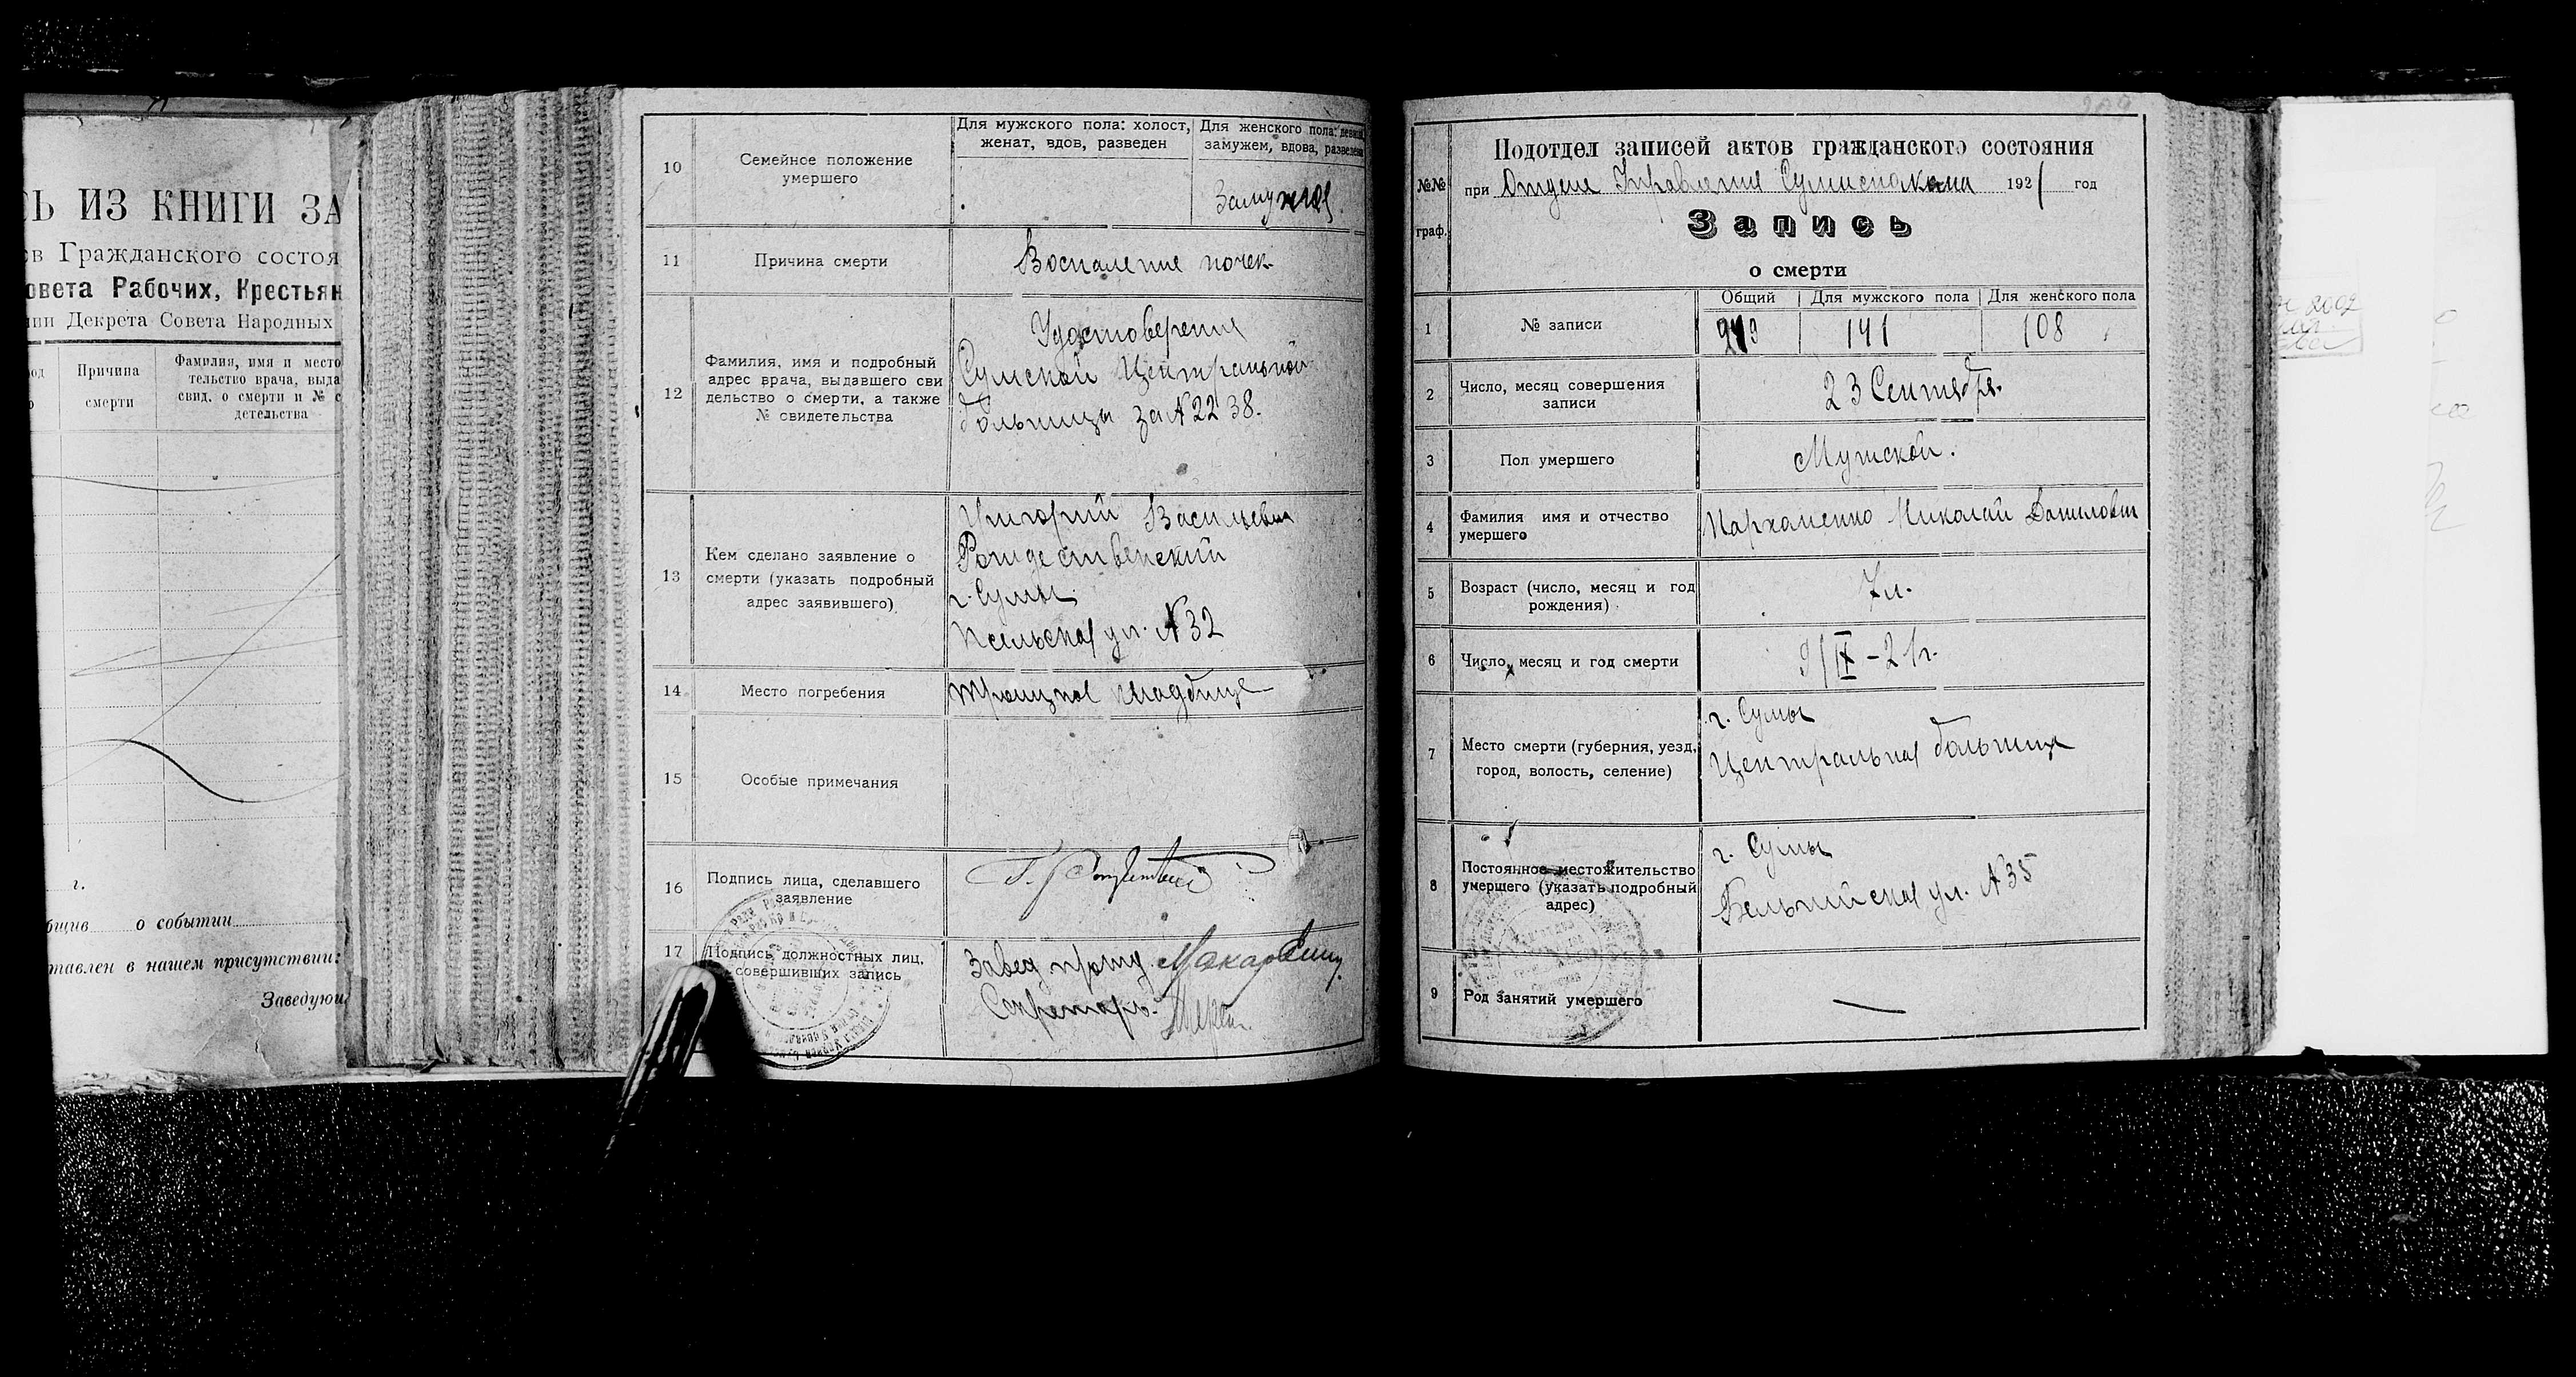 СЬ ИЗ КНИГИ ЗА
ов Гражданского состоя
овета Рабочих, Крестьян
нии Декрета Совета Народных
Причина
смерти
Фамилия, имя и место
тельство врача, выда
свид. о смерти и № с
детельства
г.
бщив о событии
тавлен в нашем присутствии:
Заведующ
10
Семейное положение
умершего
Для мужского пола: холост,
женат, вдов, разведен
Для женского пола: девица
замужем, вдова, разведена
Замужняя
11
Причина смерти
Воспаление почек
12
Фамилия, имя и подробный
адрес врача, выдавшего сви
дельство о смерти, а также
№ свидетельства
Удостоверение
Сумской Центральной
больницы за № 2238.
13
Кем сделано заявление о
смерти (указать подробный
адрес заявившего)
Григорий Васильевич
Рождественский
г. Сумы
Псельская ул. № 32
14
Место погребения
Троицкое кладбище
15
Особые примечания
16
Подпись лица, сделавшего
заявление
17
Подпись должностных лиц,
совершивших запись
Завед
Секретарь
№№
граф.
Подотдел записей актов гражданского состояния
при Отделе Управления 1921 год
Запись
о смерти
1
№ записи
Общий
Для мужского пола
Для женского пола
141
108
2
Число, месяц совершения
записи
23 Сентября.
3
Пол умершего
Мужской.
4
Фамилия имя и отчество
умершего
Пархоменко Николай Данилович
5
Возраст (число, месяц и год
рождения)
7 л.
6
Число, месяц и год смерти
9/IX-21г.
7
Место смерти (губерния, уезд,
город, волость, селение)
г. Сумы
Центральная больница
8
Постоянное местожительство
умершего (указать подробный
адрес)
г. Сумы
Бельгийская ул. № 35
9
Род занятий умершего
—